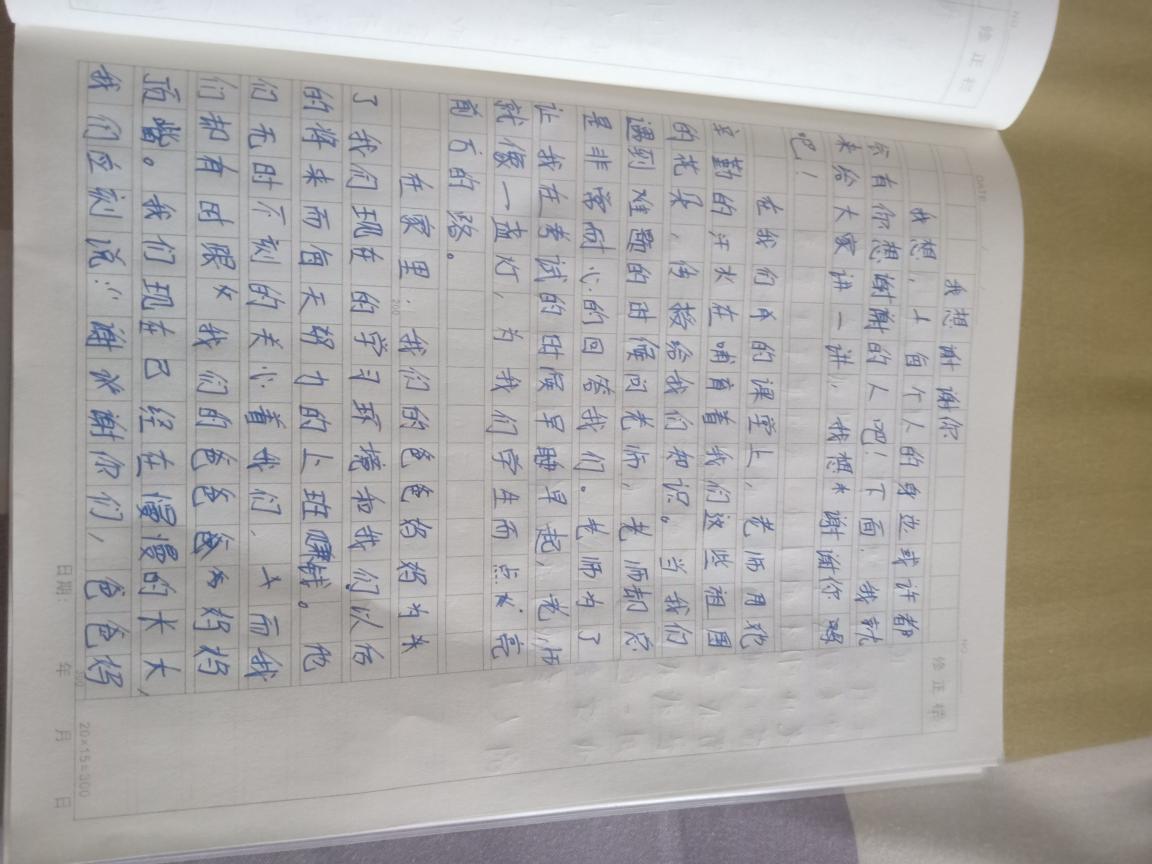 NO.
DATE
修正栏
我想谢谢你
我想,每个人的身边或许都
会有你想谢谢的人吧!下面,我就
来给大家讲一讲,我想谢谢你
吧!
在我们的课堂上,老师用她
辛勤的汗水在哺育着我们这些祖国
的花朵,传授给我们知识。当我们
遇到难题的时候问老师,老师都总
是非常耐心的回答我们。老师为了
让我在考试的时候早睡早起,老师
就像一盏灯,为我们学生而点亮
前方的路。
在家里:我们的爸爸妈妈为
了我们现在的学习环境和我们以后
的将来而每天努力的上班赚钱。他
们无时不刻的关心着我们,而我
们却有时跟我们的爸爸妈妈
顶嘴。我们现在已经在慢慢的长大,
我们应刻说:“谢谢你们,爸爸妈
200
300
20×15=300
日期: 年 月 日
NO.
修正栏